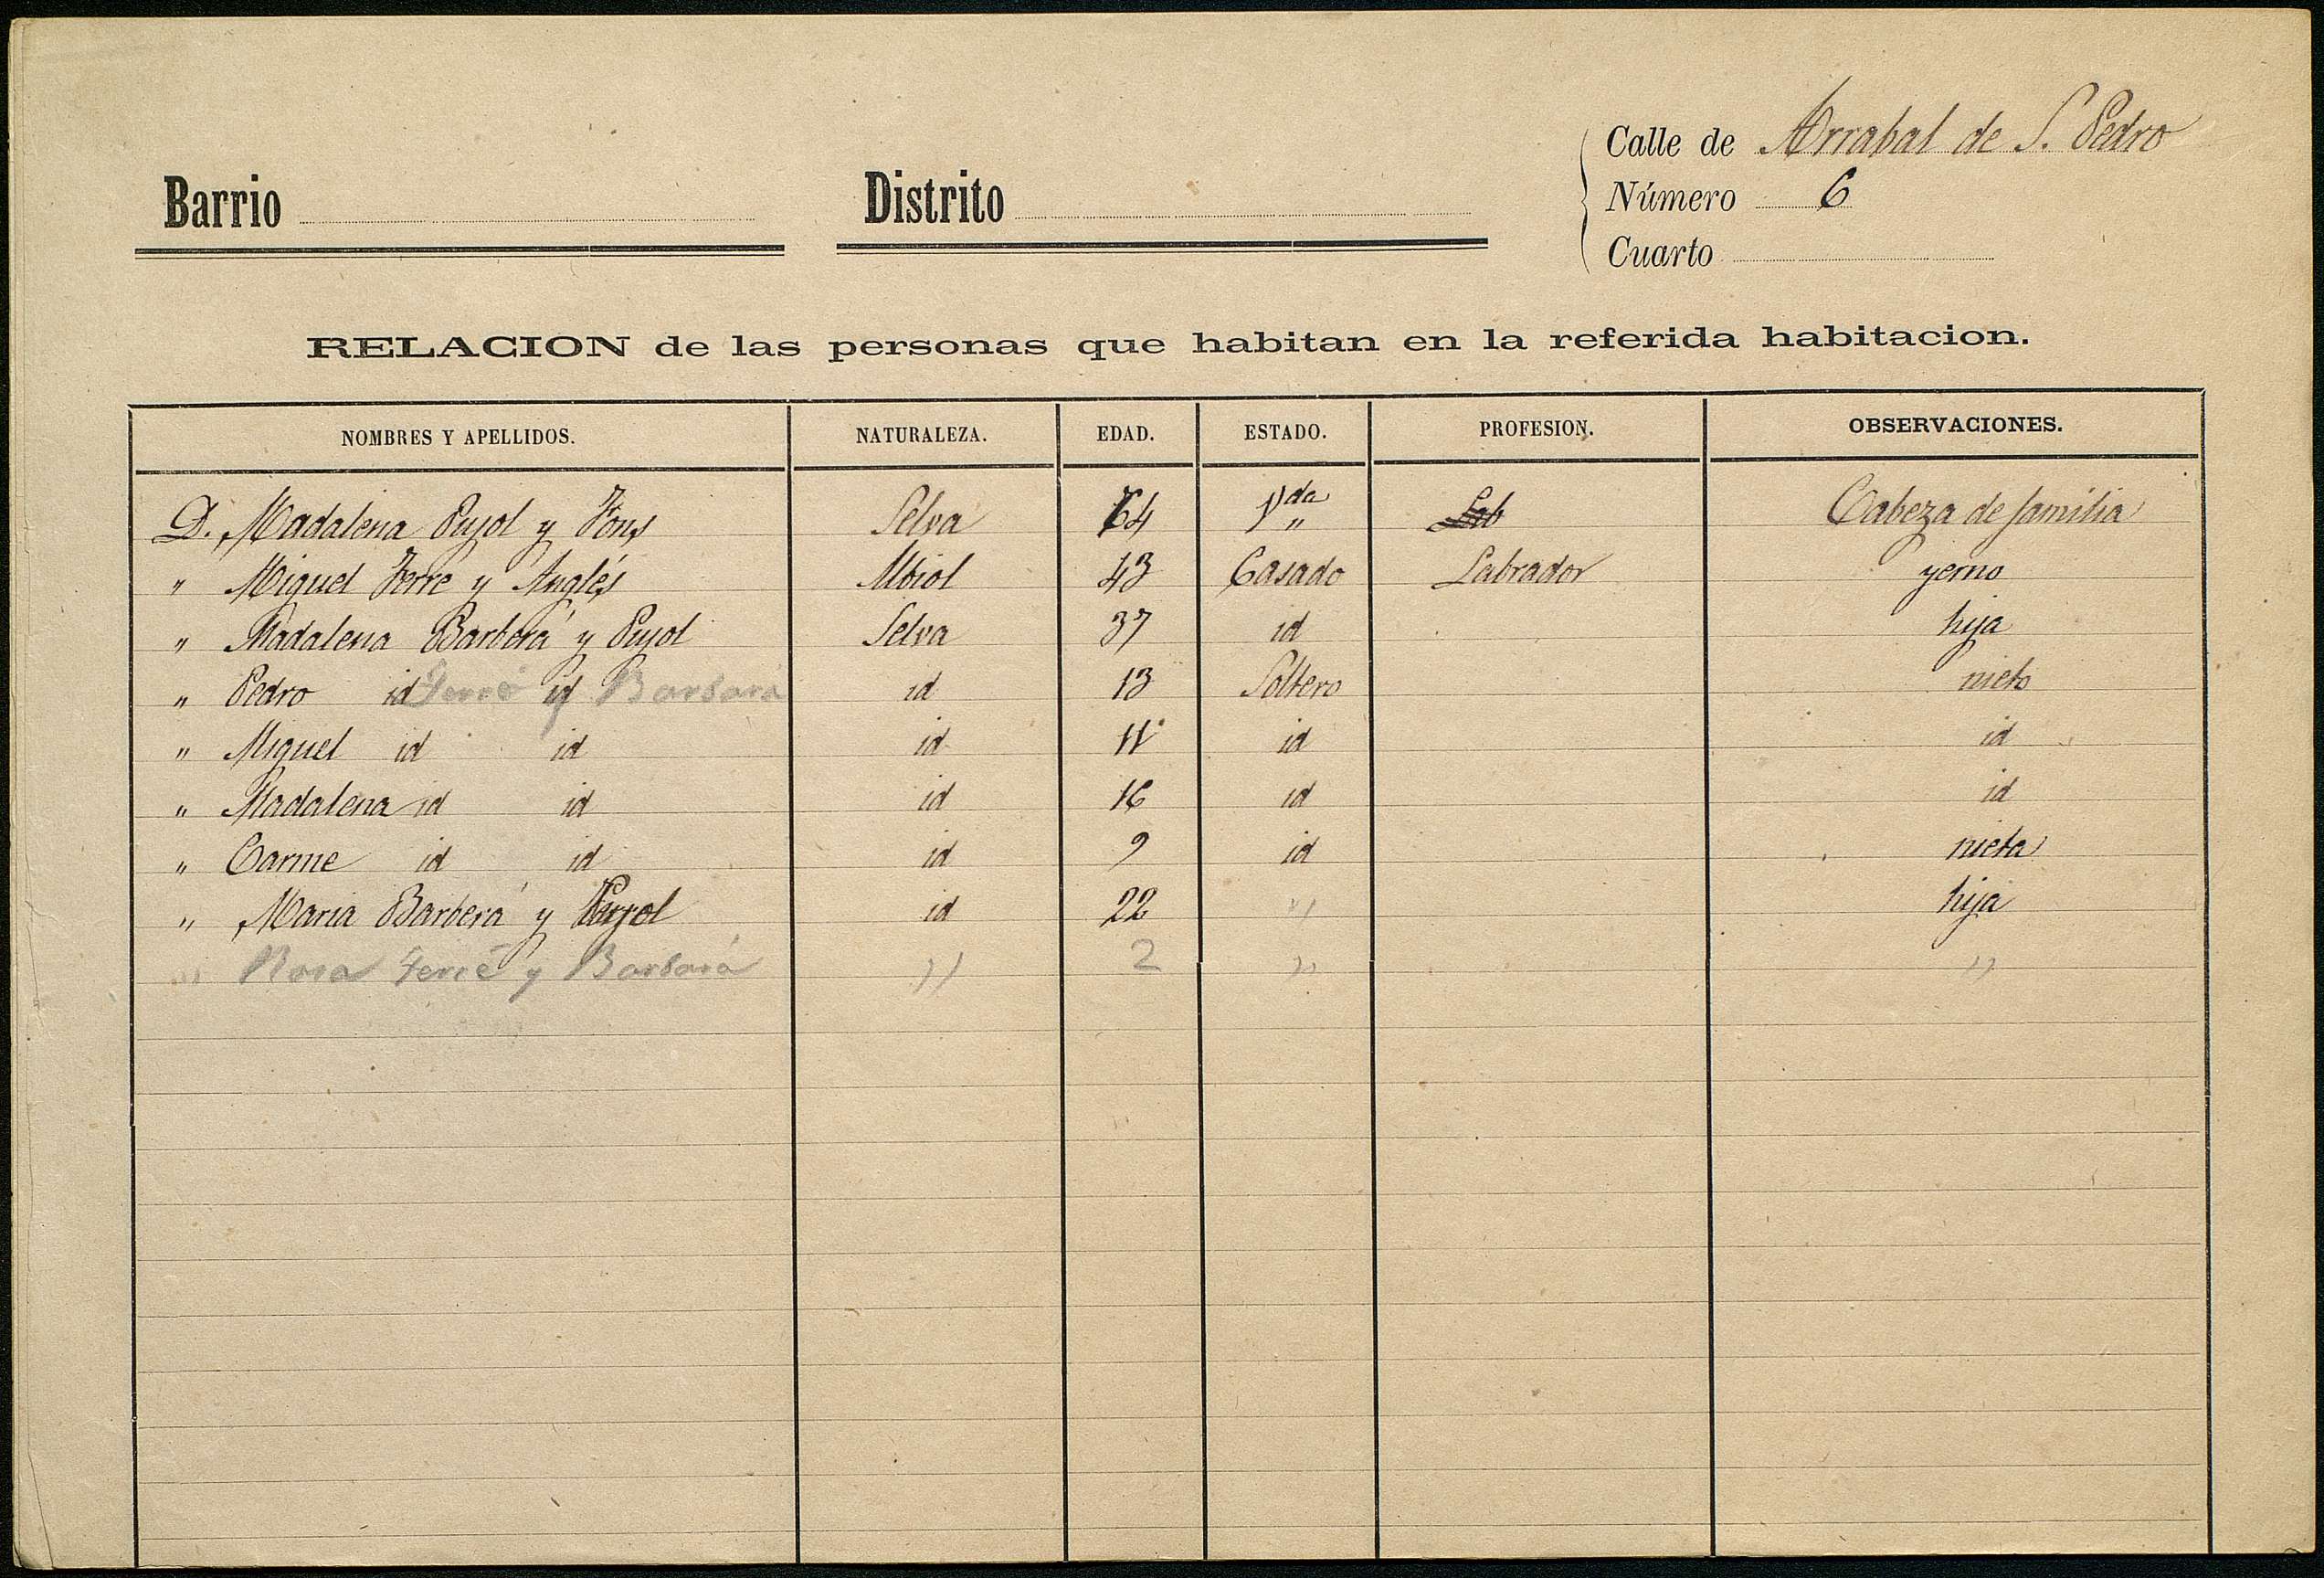 Calle de Arrabal de S. Pedro
Barrio Distrito Número 6
Cuarto
RELACION de las personas que habitan en la referida habitacion.
NOMBRES Y APELLIDOS. NATURALEZA. EDAD. ESTADO. PROFESION. OBSERVACIONES.
D. Madalena Pujol y Fons Selva 64 Vda " Lab Cabeza de familia
" Miguel Ferré y Anglés Albiol 43 Casado Labrador yerno
" Madalena Barberá y Pujol Selva 37 id hija
" Pedro id Ferré id y Barbará id 13 Soltero nieto
" Miguel id id id 11 id id
" Madalena id id id 16 id id
" Carme id id id 9 id nieta
" Maria Barberá y Pujol id 22 " hija
" Rosa Ferré y Barbará " 2 " "